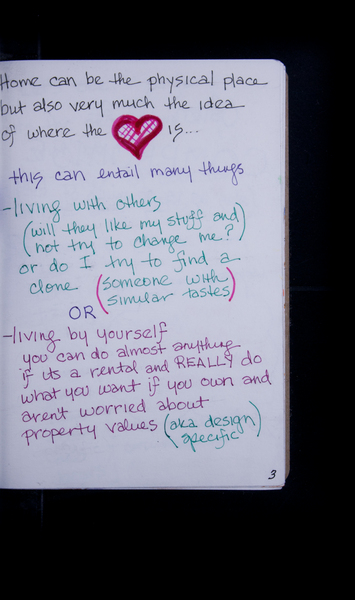 Home can be the physical place
but also very much the idea
of where the is...
this can entail many things
-living with others
(will they like my stuff and
not try to change me?)
or do I try to find a
clone (someone with
similar tastes)
OR
-living by yourself
you can do almost anything
if its a rental and REALLY do
what you want if you own and
aren't worried about
property values (aka design
specific)
3